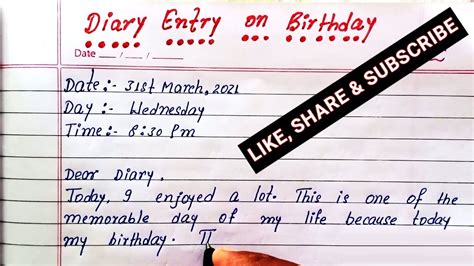 Diary Entry on Birthday
Date __/__/__
Date:- 31st March, 2021
Day:- Wednesday
Time:- 8:30 Pm
LIKE, SHARE & SUBSCRIBE
Dear Diary,
Today, I enjoyed a lot. This is one of the
memorable day of my life because today
my birthday.